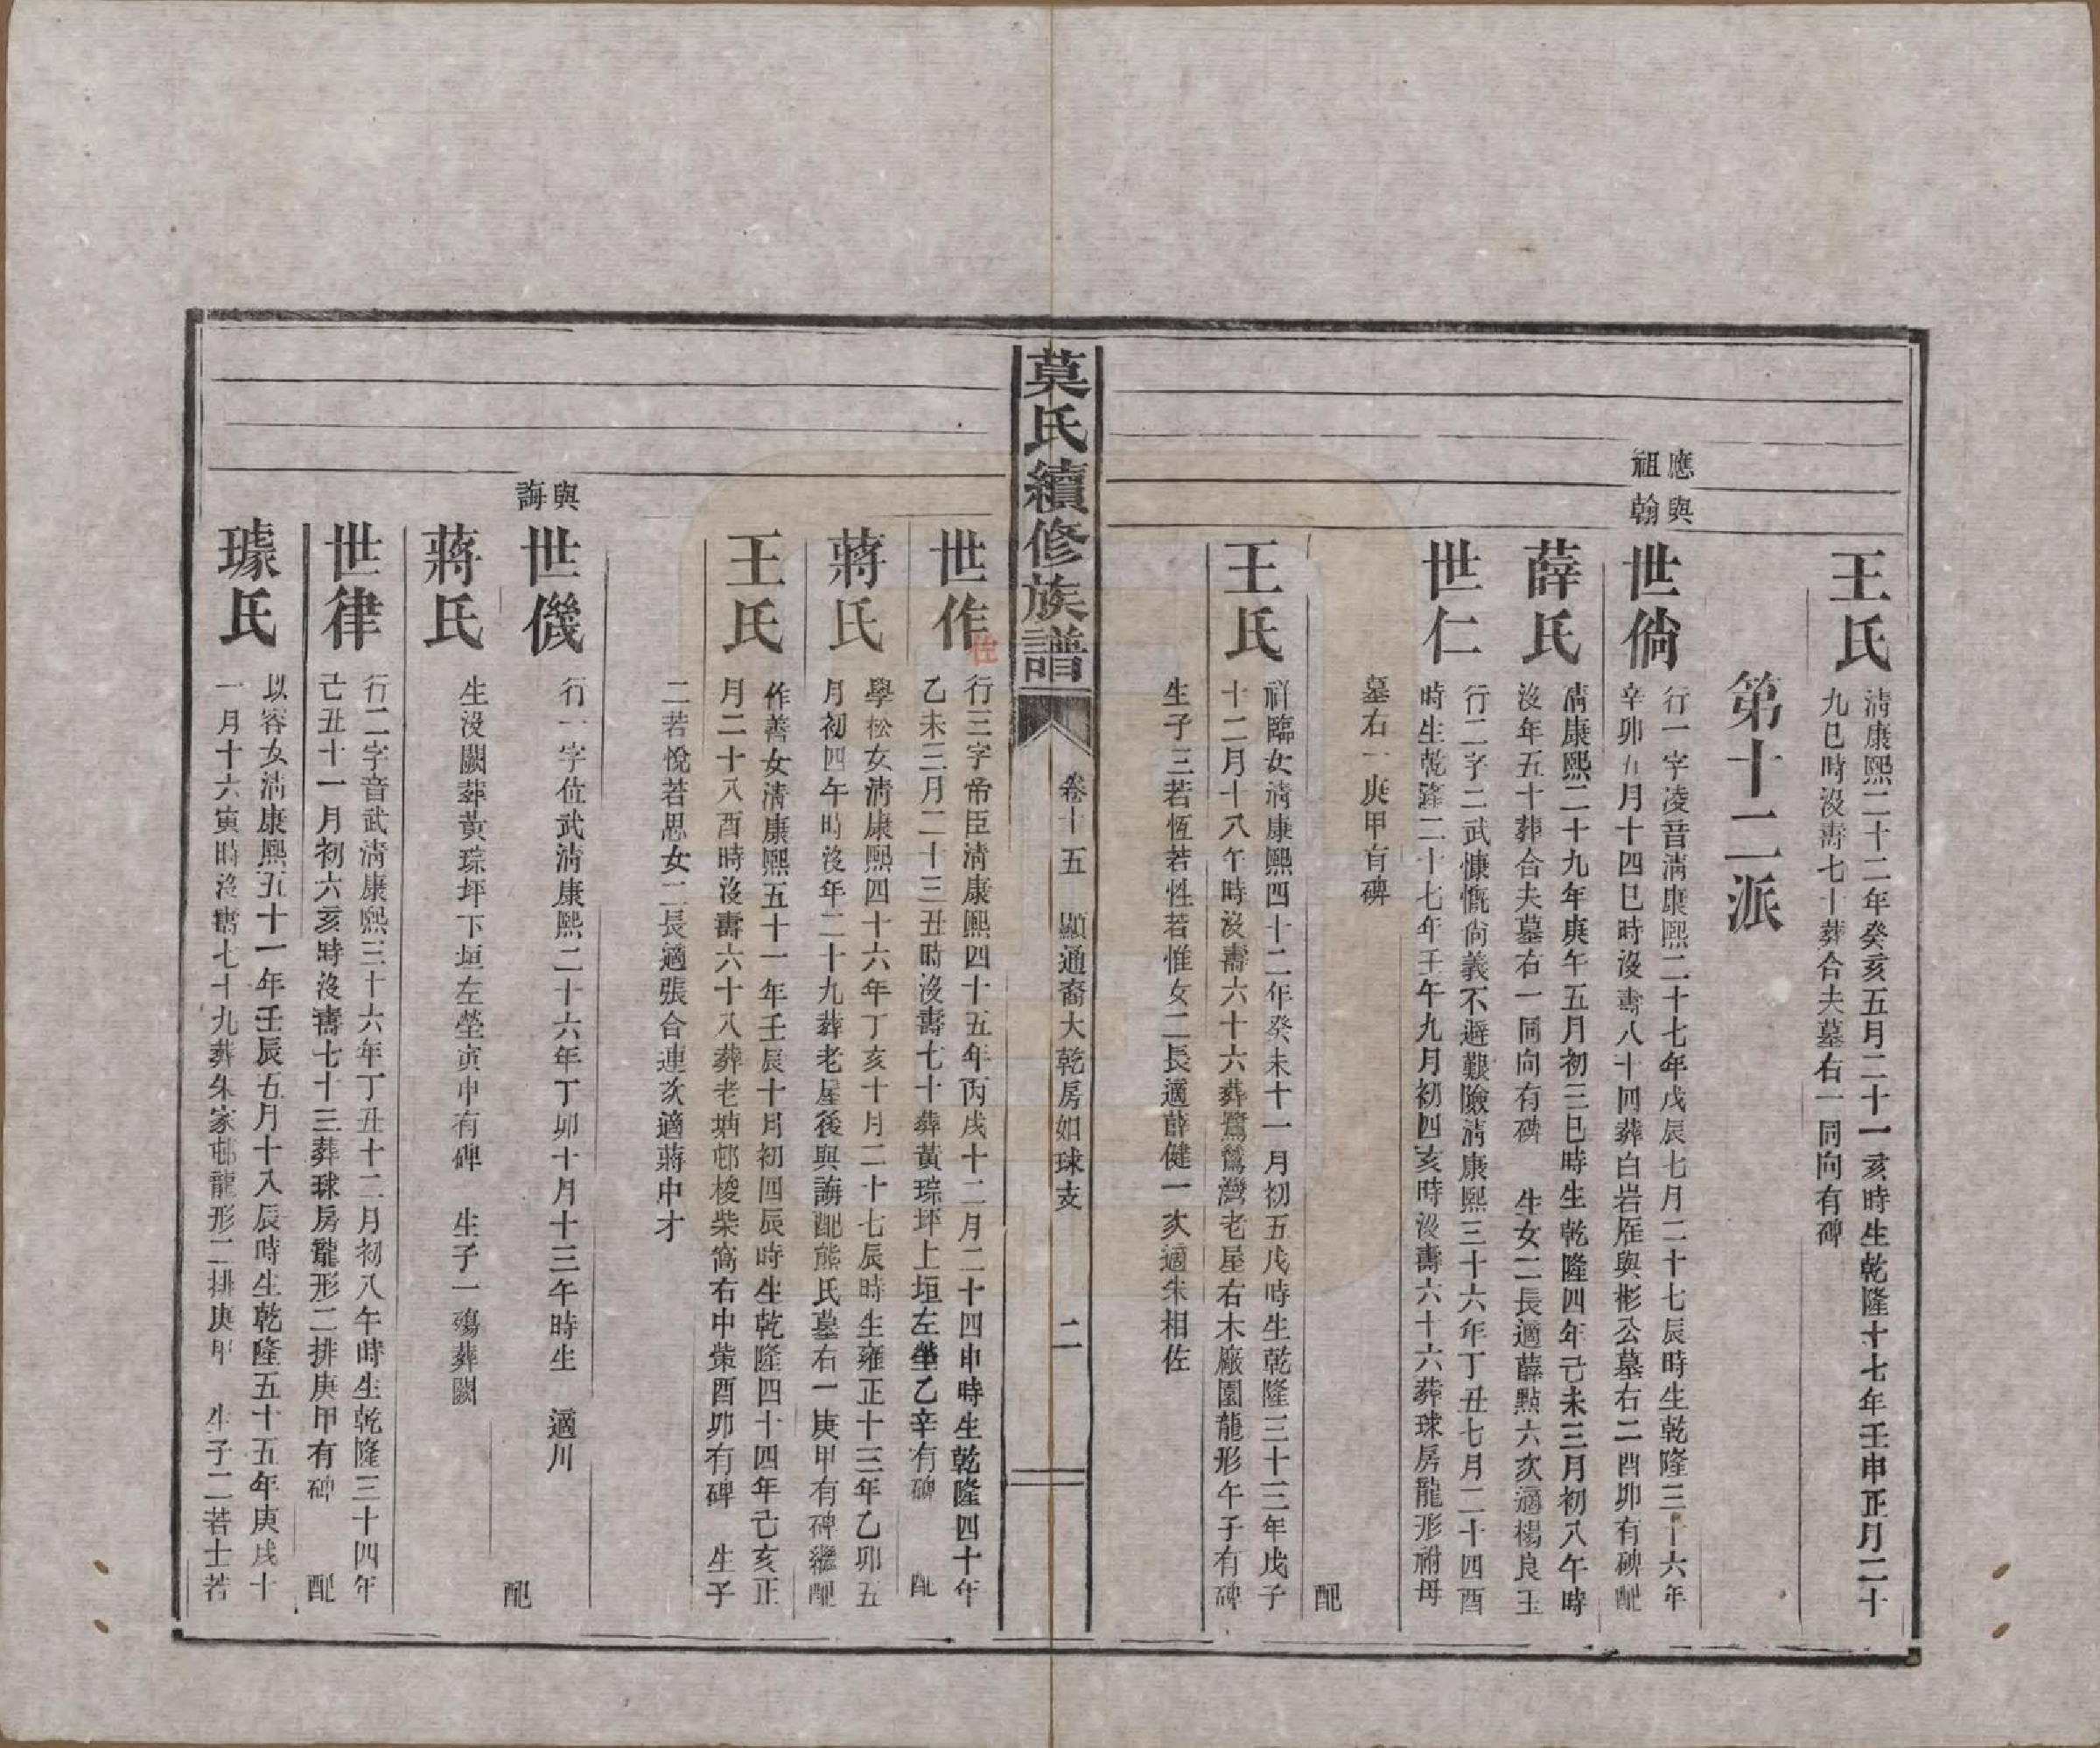 王氏
淸康熙二十二年癸亥五月二十一亥時生乾隆十七年壬申正月二十
九巳時沒壽七十葬合夫墓右一同向有碑
第十二派
應與
祖翰
世倘
行一字凌音淸康熙二十七年戊辰七月二十七辰時生乾隆三十六年
辛卯五月十四巳時沒壽八十回葬白岩雁與彬公墓右二酉卯有碑配
薛氏
淸康熙二十九年庚午五月初三巳時生乾隆四年己未三月初八午時
沒年五十葬合夫墓右一同向有碑 生女二長適薛點六次適楊良玉
世仁
行二字二武慷慨尙義不避艱險淸康熙三十六年丁丑七月二十四酉
時生乾隆二十七年壬午九月初四亥時沒壽六十六葬球房龍形祔母
墓右一庚甲有碑
配
王氏
祥臨女淸康熙四十二年癸未十一月初五戌時生乾隆三十三年戊子
十二月十八午時沒壽六十六葬鷺鷥灣老屋右木廠園龍形午子有碑
生子三若恆若性若惟女二長適薛健一次適朱相佐
莫氏續修族譜
卷十五 顯通裔大乾房如球支 二
世作
佐
行三字帝臣淸康熙四十五年丙戌十二月二十四申時生乾隆四十年
乙未三月二十三丑時沒壽七十葬黃琮坪上垣左塋乙辛有碑 配
蔣氏
學松女淸康熙四十六年丁亥十月二十七辰時生雍正十三年乙卯五
月初四午時沒年二十九葬老屋後與誨配熊氏墓右一庚甲有碑繼配
王氏
作善女淸康熙五十一年壬辰十月初四辰時生乾隆四十四年己亥正
月二十八酉時沒壽六十八葬老塘邨梭柴窩右中柴酉卯有碑 生子
二若悅若思女二長適張合連次適蔣中才
與
誨
世儀
行一字位武淸康熙二十六年丁卯十月十三午時生 適川
配
蔣氏
生沒闕葬黃琮坪下垣左塋寅申有碑 生子一殤葬闕
世律
行二字音武淸康熙三十六年丁丑十二月初八午時生乾隆三十四年
己丑十一月初六亥時沒壽七十三葬球房龍形二排庚甲有碑 配
璩氏
以容女淸康熙五十一年壬辰五月十八辰時生乾隆五十五年庚戌十
一月十六寅時沒壽七十九葬朱家邨龍形二排庚甲 生子二若士若